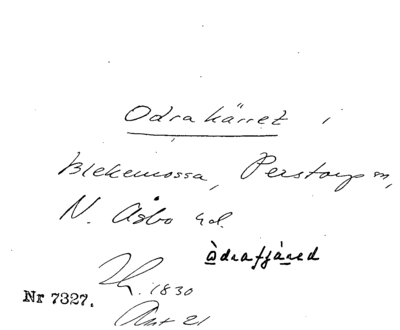 Odrakärret i
Blekemossa, Perstorp sn,
N. Åsbo hd.
òdrafjàred
Lh. 1830
Nr 7327.
Akt 21